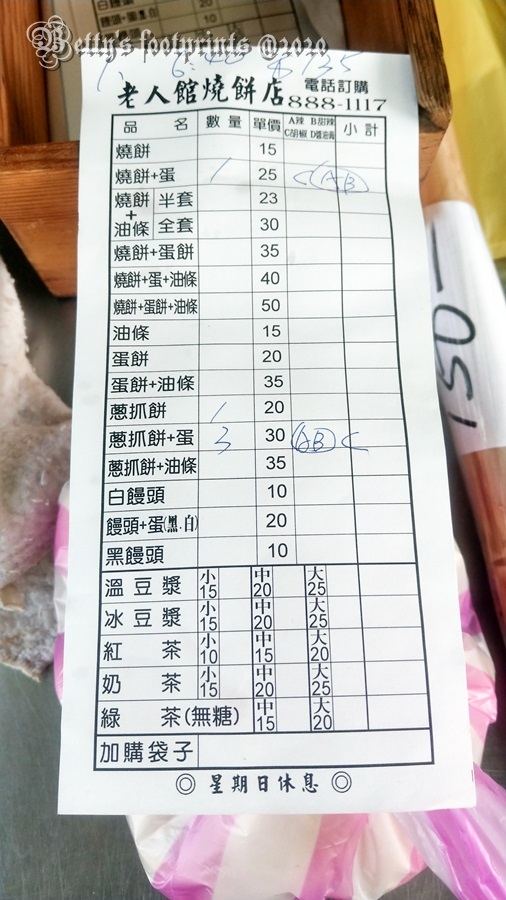 白饅頭 10
20
Betty's footprints @2020
6:45 $135
老人館燒餅店 電話訂購 888-1117
品名 數量 單價 A辣 B甜辣 C胡椒 D醬油膏 小計
燒餅 15
燒餅+蛋 1 25 C (AB)
燒餅+油條 半套 23
全套 30
燒餅+蛋餅 35
燒餅+蛋+油條 40
燒餅+蛋餅+油條 50
油條 15
蛋餅 20
蛋餅+油條 35
蔥抓餅 1 20
蔥抓餅+蛋 3 30 (AB) C
蔥抓餅+油條 35
白饅頭 10
饅頭+蛋(黑.白) 20
黑饅頭 10
溫豆漿 小15 中20 大25
冰豆漿 小15 中20 大25
紅茶 小10 中15 大20
奶茶 小15 中20 大25
綠茶(無糖) 中15 大20
加購袋子
◎ 星期日休息 ◎
150-